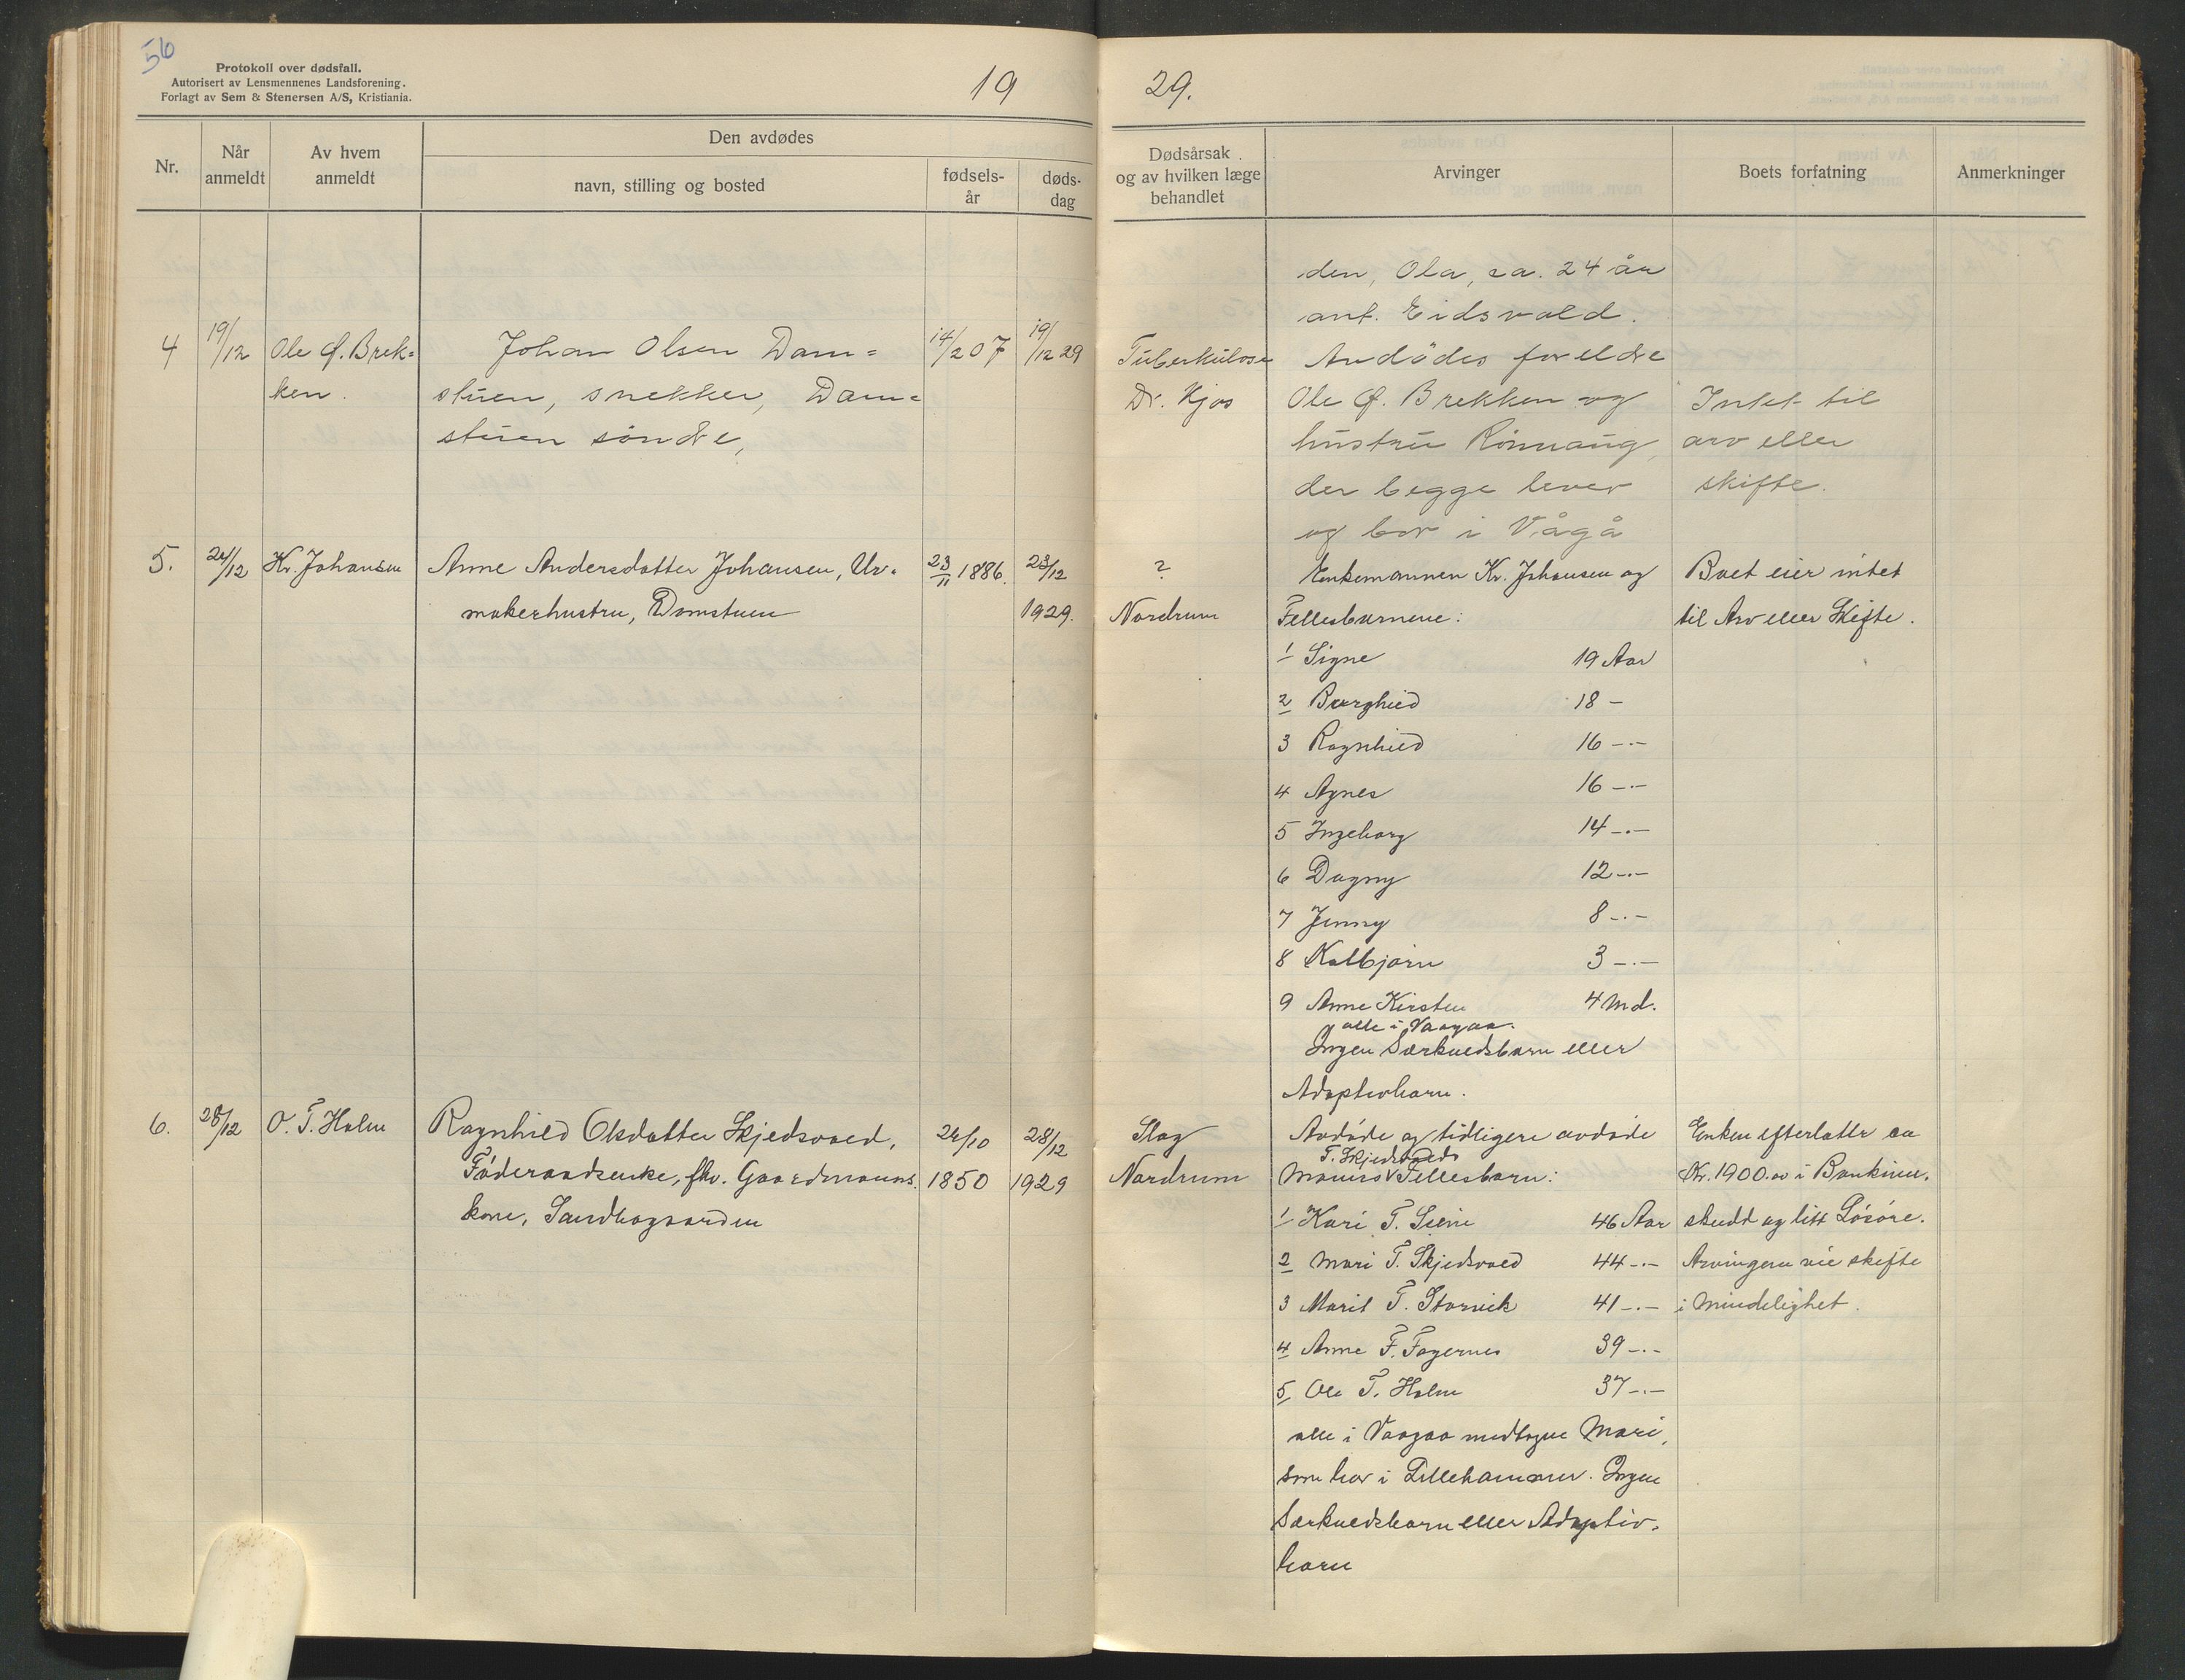 56
Protokoll over dødsfall.
Autorisert av Lensmennenes Landsforening.
Forlagt av Sem & Stenersen A/S, Kristiania.
19
29.
Nr.
Når anmeldt
Av hvem anmeldt
Den avdødes
navn, stilling og bosted
fødsels-år
døds-dag
Dødsårsak og av hvilken læge behandlet
Arvinger
Boets forfatning
Anmerkninger
den, Ola, ca. 24 år
ant. Eidsvold.
4
19/12
Ole Ø. Brek=
ken.
Johan Olsen Dam=
stuen, snekker, Dam=
stuen söndre,
14/2 07
19/12 29
Tuberkulose
Dr. Kjos
Avdödes foreldre
Ole Ø. Brekken og
hustru Rönnaug,
der begge lever
og bor i Vågå
Intet til
arv eller
skifte.
5.
24/12
Kr. Johansen
Anne Andersdatter Johansen, Ur-
makerhustru, Damstuen
23/11 1886.
23/12
1929.
?
Nordrum
Enkemannen Kr. Johansen og
Fellesbarnene:
1 Signe 19 Aar
2 Borghild 18 -
3 Ragnhild 16 -.-
4 Agnes 16 -.-
5 Ingeborg 14 -.-
6 Dagny 12 -.-
7 Jenny 8 -.-
8 Kolbjørn 3 -.-
9 Anne Kirsten 4 Md.
alle i Vaagaa.
Ingen Særkuldsbarn eller
Adoptivbarn.
Boet eier intet
til Arv eller Skifte.
6.
28/12
O. T. Holm
Ragnhild Olsdatter Skjedsvold,
Føderaadsenke, fhv. Gaardmanns-
kone, Sandbogaarden
24/10
1850
28/12
1929
Slag
Nordrum
Avdøde og tidligere avdøde
T. Skjedsvolds
Manns V Fellesbarn:
1 Kari T. 46 Aar
2 Mari T. Skjedsvold 44 -.-
3 Marit T. Storvik 41 -.-
4 Anne T. Fagernes 39 -.-
5 Ole T. Holm 37 -.-
alle i Vaagaa undtagne Mari,
som bor i Lillehammer. Ingen
Særkuldsbarn eller Adoptiv-
barn
Enken efterlatte ca
Kr. 1900.00 i Bankinn-
skudd og litt Løsøre.
Arvingene vil skifte
i Mindelighet.